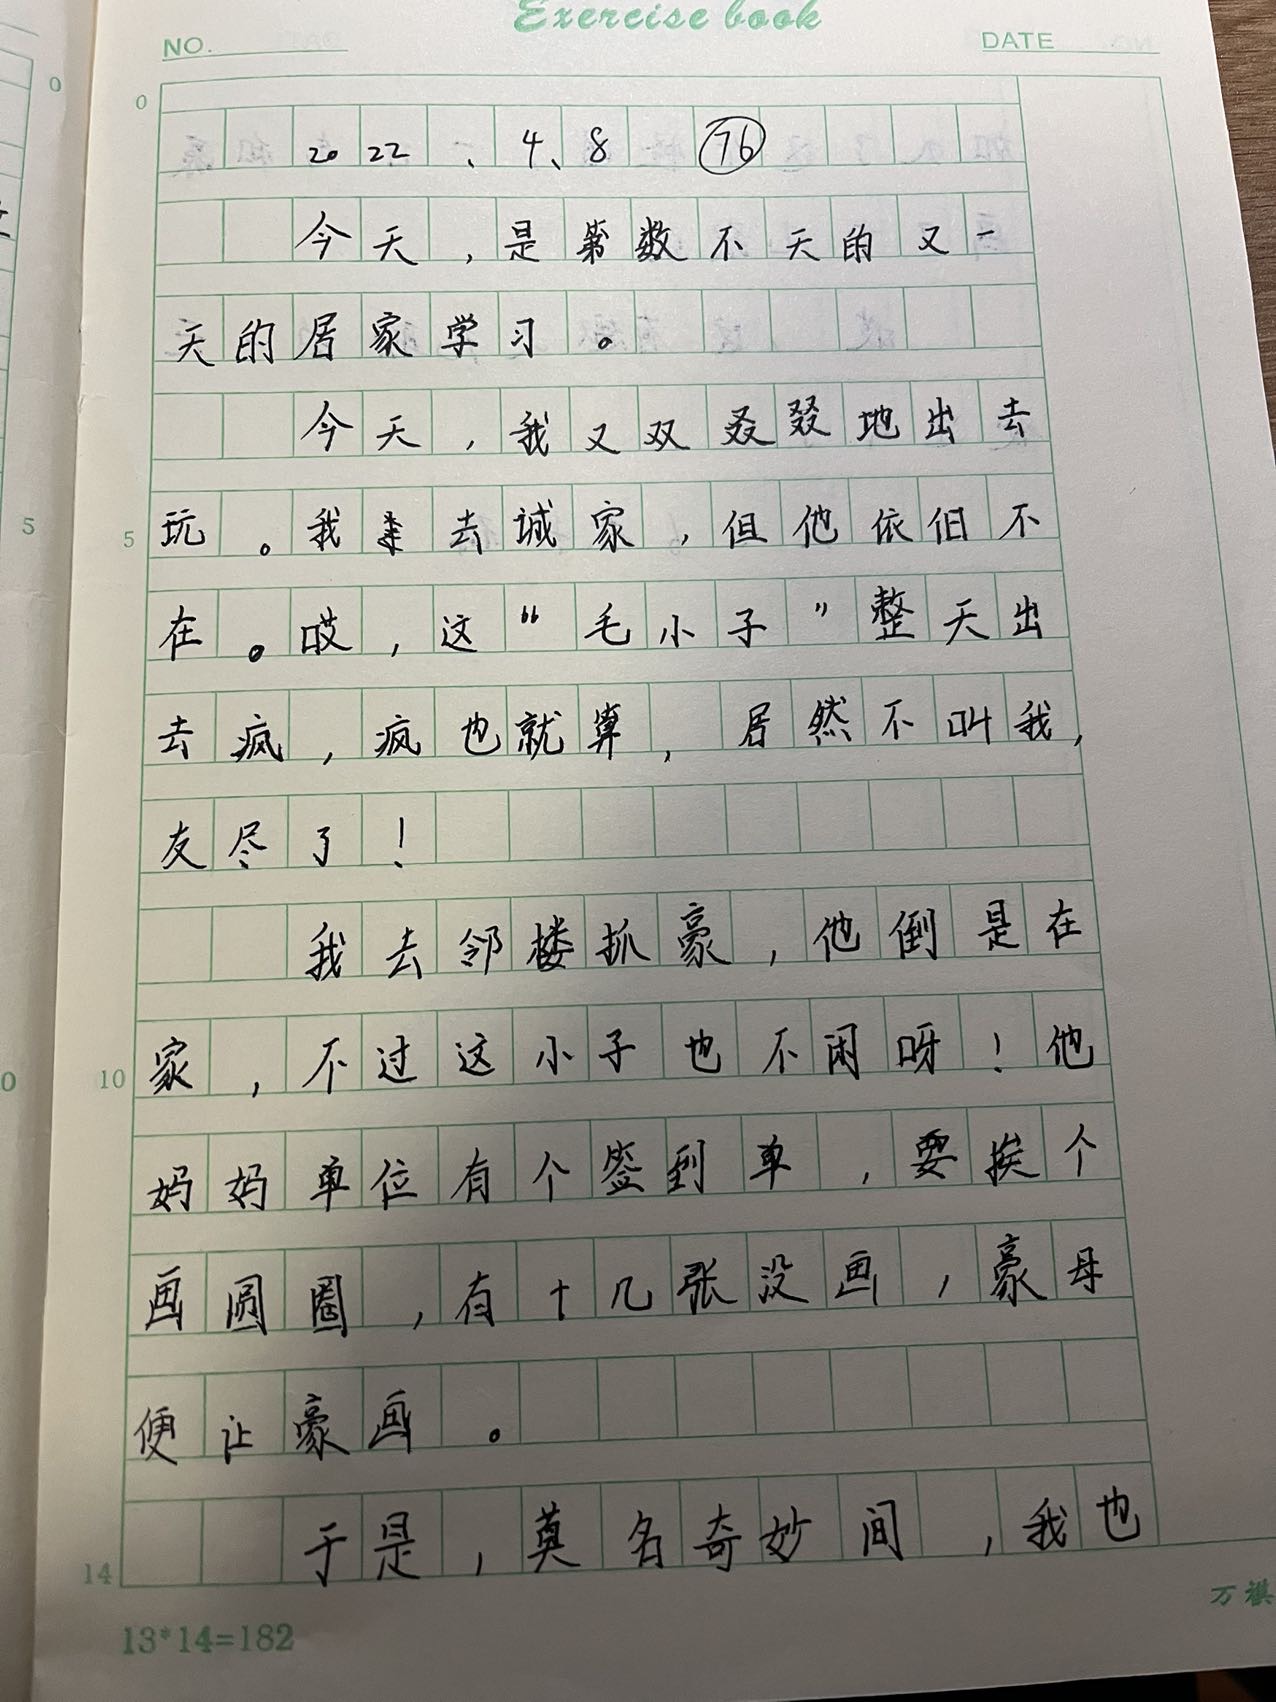 Exercise book
NO.
DATE
0
2022、4、8 76
今天，是第数不天的又一
天的居家学习。
今天，我又双叒叕地出去
5
玩。我去诚家，但他依旧不
在。哎，这“毛小子”整天出
去疯，疯也就算，居然不叫我，
友尽了！
我去邻楼抓豪，他倒是在
10
家，不过这小子也不闲呀！他
妈妈单位有个签到单，要挨个
画圆圈，有十几张没画，豪母
便让豪画。
14
于是，莫名奇妙间，我也
13*14=182
万祺